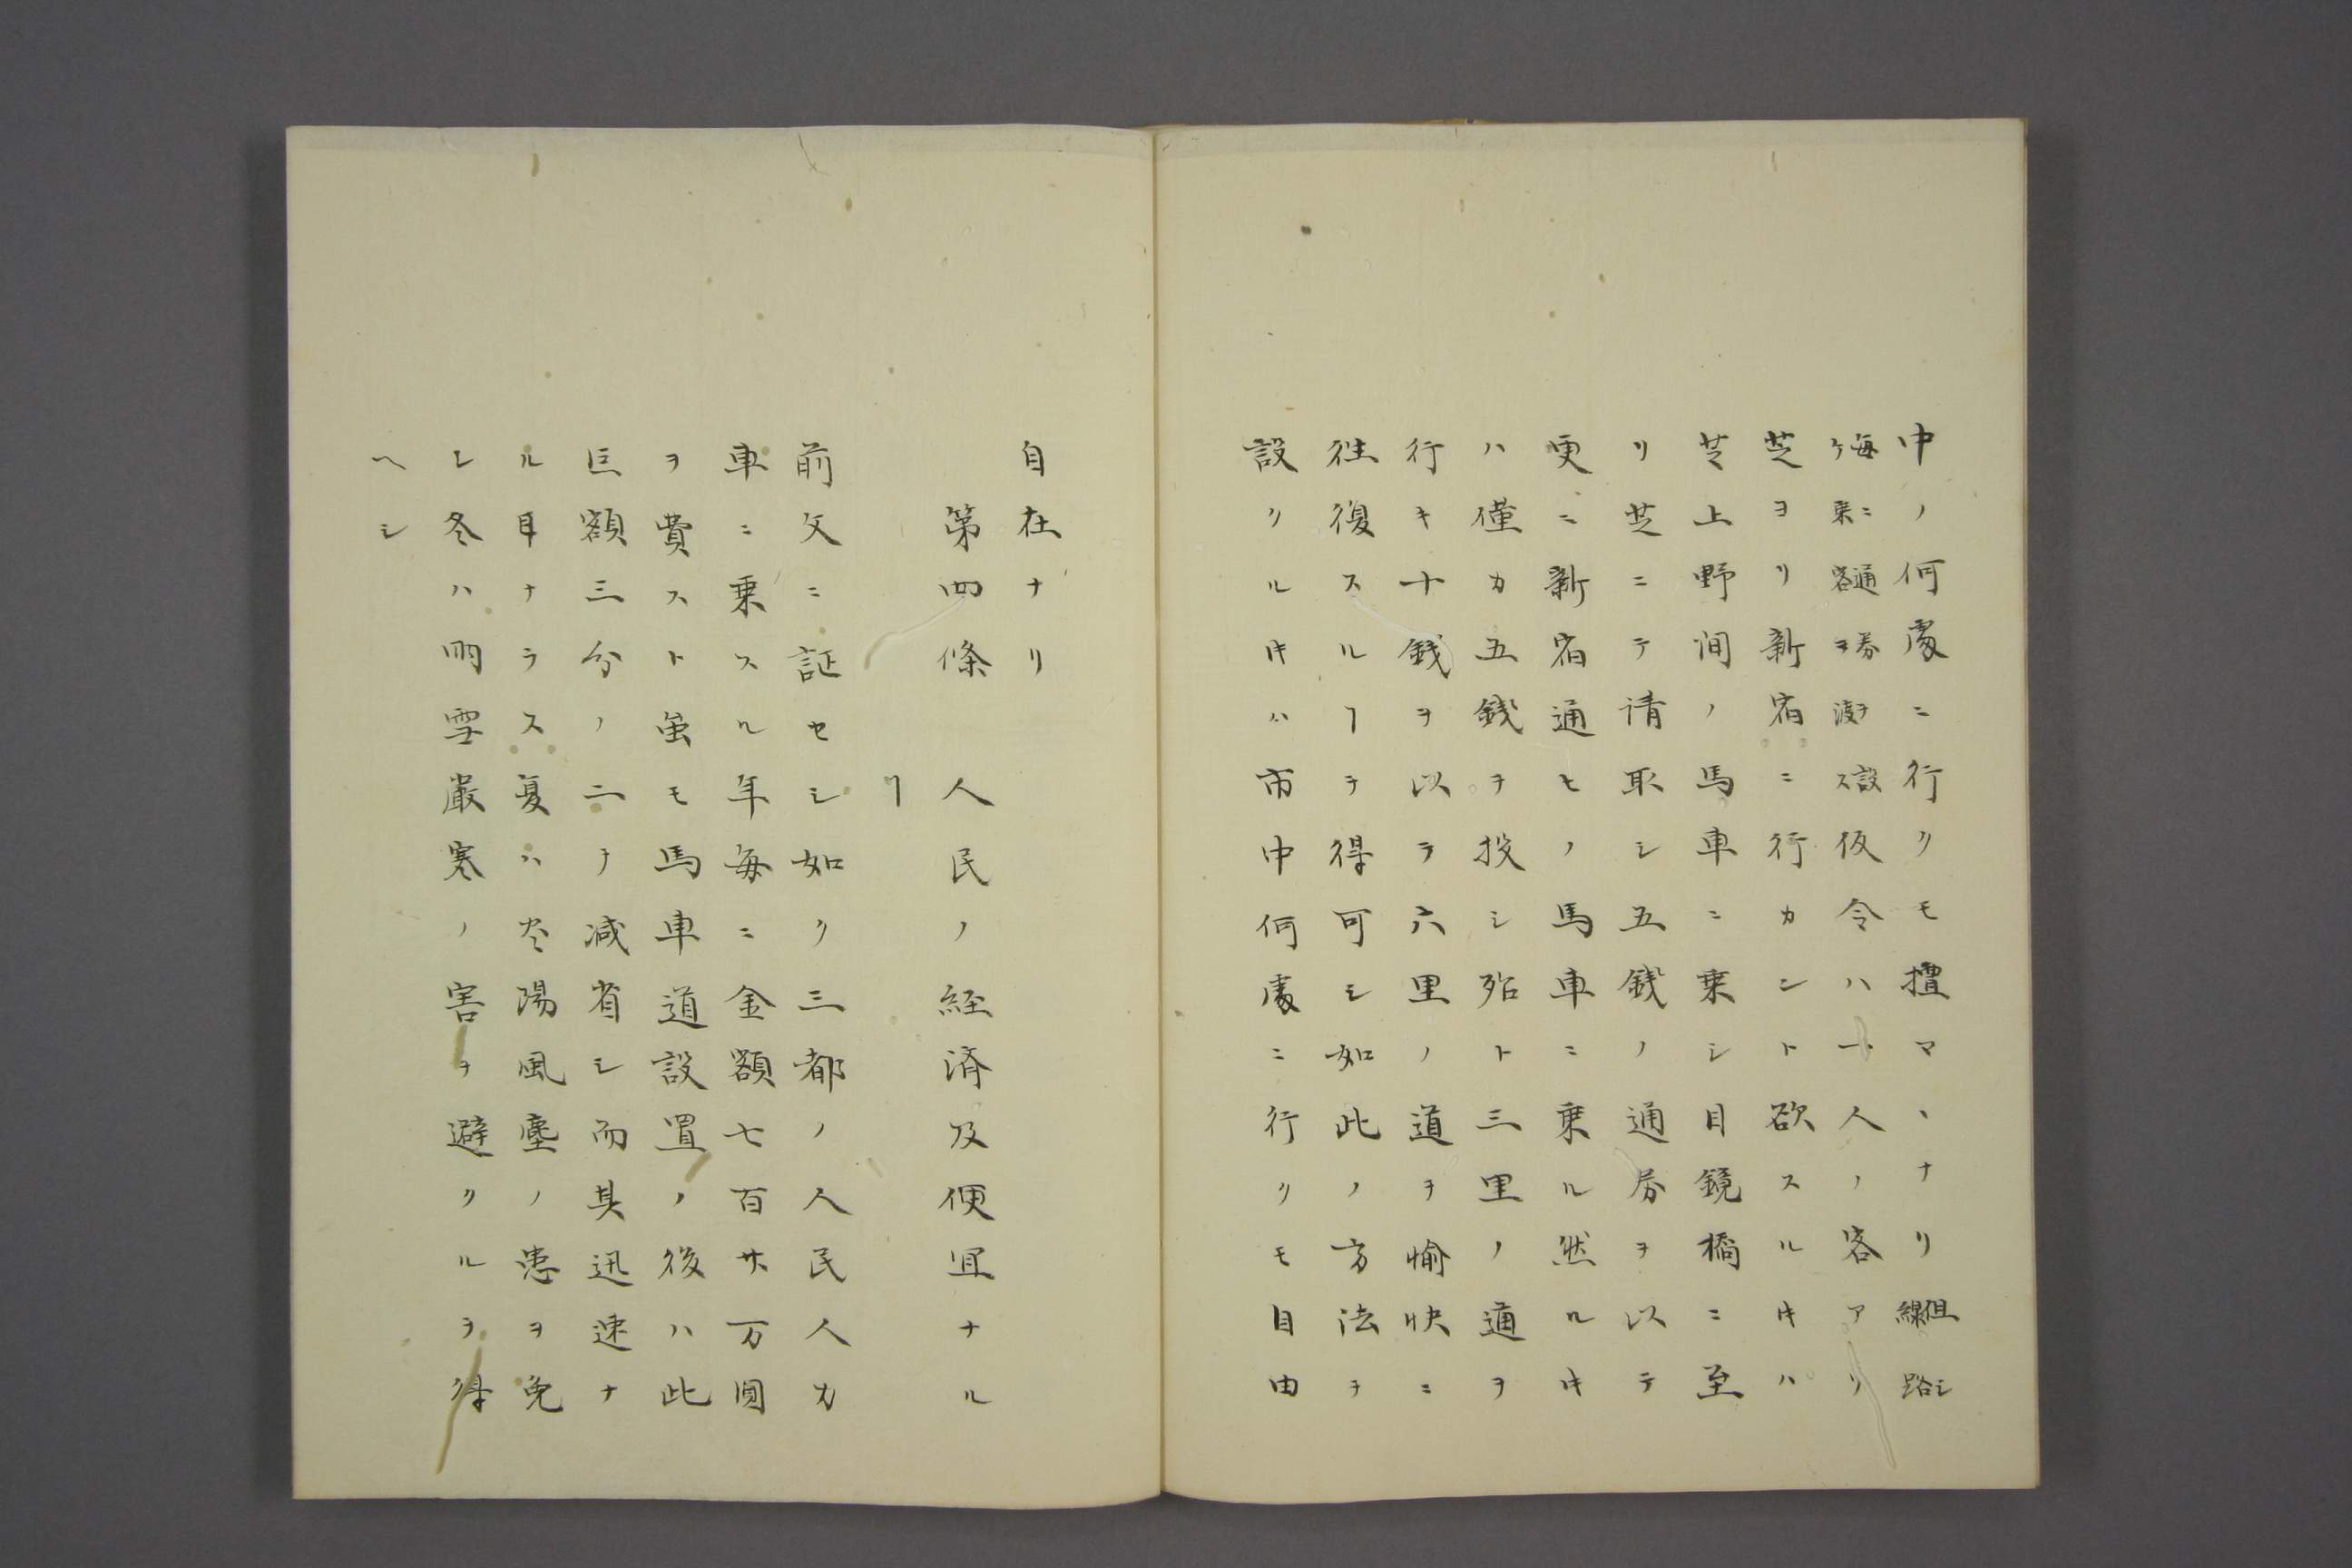 中ノ何處ニ行クモ擅マヽナリ但シ線路
毎ニ通券ヲ設ケ乗客ヲ渡ス仮令ハ一人ノ客アリ
芝ヨリ新宿ニ行カント欲スルトキハ
芝上野間ノ馬車ニ乗シ目鏡橋ニ至
リ芝ニテ請取シ五銭ノ通券ヲ以テ
更ニ新宿通ヒノ馬車ニ乗ル然ルトキ
ハ僅カ五銭ヲ投シ殆ト三里ノ道ヲ
行キ十銭ヲ以テ六里ノ道ヲ愉快ニ
往復スルヿヲ得可シ如此ノ方法ヲ
設クルトキハ市中何處ニ行クモ自由
自在ナリ
第四條 人民ノ経済及便宜ナル
ヿ
前文ニ証セシ如ク三都ノ人民人力
車ニ乗スル年毎ニ金額七百廿万圓
ヲ費スト虽モ馬車道設置ノ後ハ此
巨額三分ノ二ヲ減省シ而其迅速ナ
ル耳ナラス夏ハ炎陽風塵ノ患ヲ免
レ冬ハ雨雪嚴寒ノ害ヲ避クルヲ得
ヘシ